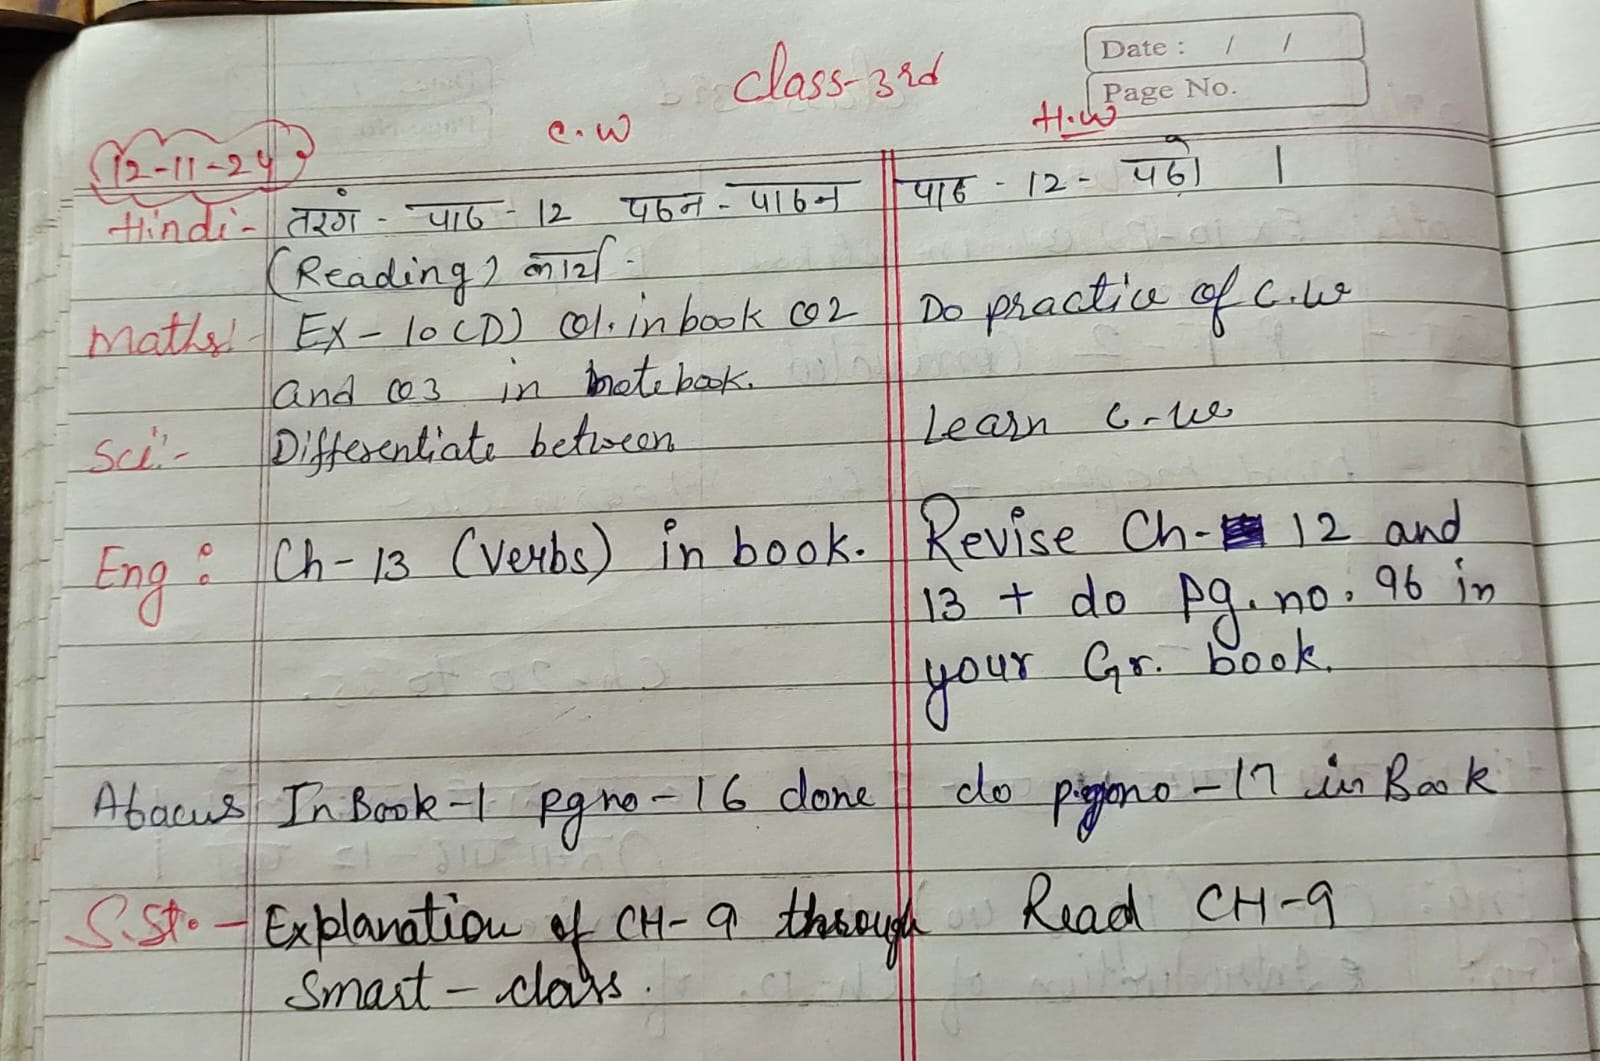 Class-3rd
Date : / /
Page No.
C.W
H.W
12-11-24
Hindi- तरंग - पाठ - 12 पठन - पाठन
पाठ - 12 - पढ़ो ।
(Reading) कार्य -
Maths:- EX-10(D) Q1. in book Q2
Do practice of C.W
and Q3 in notebook.
Sci:- Differentiate between
Learn C-W
Eng: Ch-13 (Verbs) in book.
Revise Ch- 12 and
13 + do pg.no. 96 in
your Gr. book.
Abacus In Book-1 pgno-16 done
do pgno-17 in Book
S.St.- Explanation of CH-9 through
Read CH-9
Smart-class.